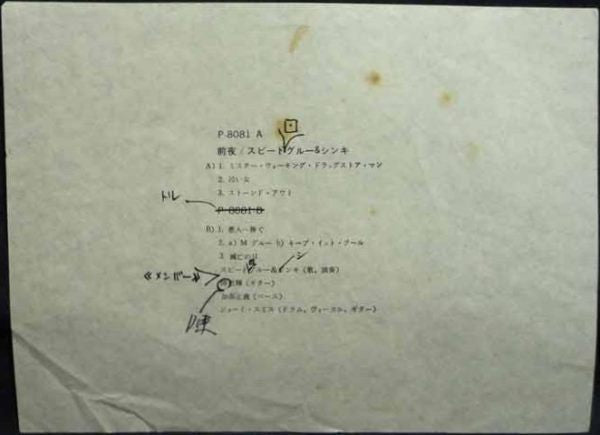 P-8081 A
前夜 / スピードグルー&シンキ
A) 1. ミスター・ウォーキング・ドラッグストア・マン
2. い女
3. ストーンド・アウト
トル
P-8081 B
B) 1. 悪人へ捧ぐ
2. a) M グルー b) キープ・イット・クール
3. 滅亡の日
シ
スピードグルー&シンキ (歌, 演奏)
《メンバー》
輝 (ギター)
加部正義 (ベース)
ジョーイ・スミス (ドラム, ヴォーカル, ギター)
陳